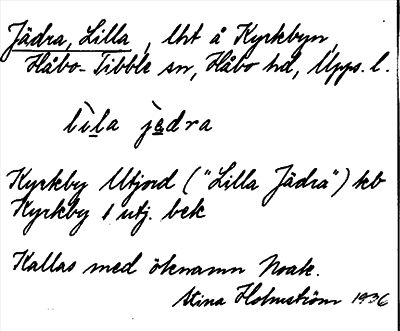 Jädra, Lilla, lht å Kyrkbyn,
Håbo-Tibble sn, Håbo hd, Upps. l.
lìla jädra
Kyrkby Utjord ("Lilla Jädra") kb
Kyrkby 1 utj. bek
Kallas med öknamn Noak.
Stina Holmström 1936